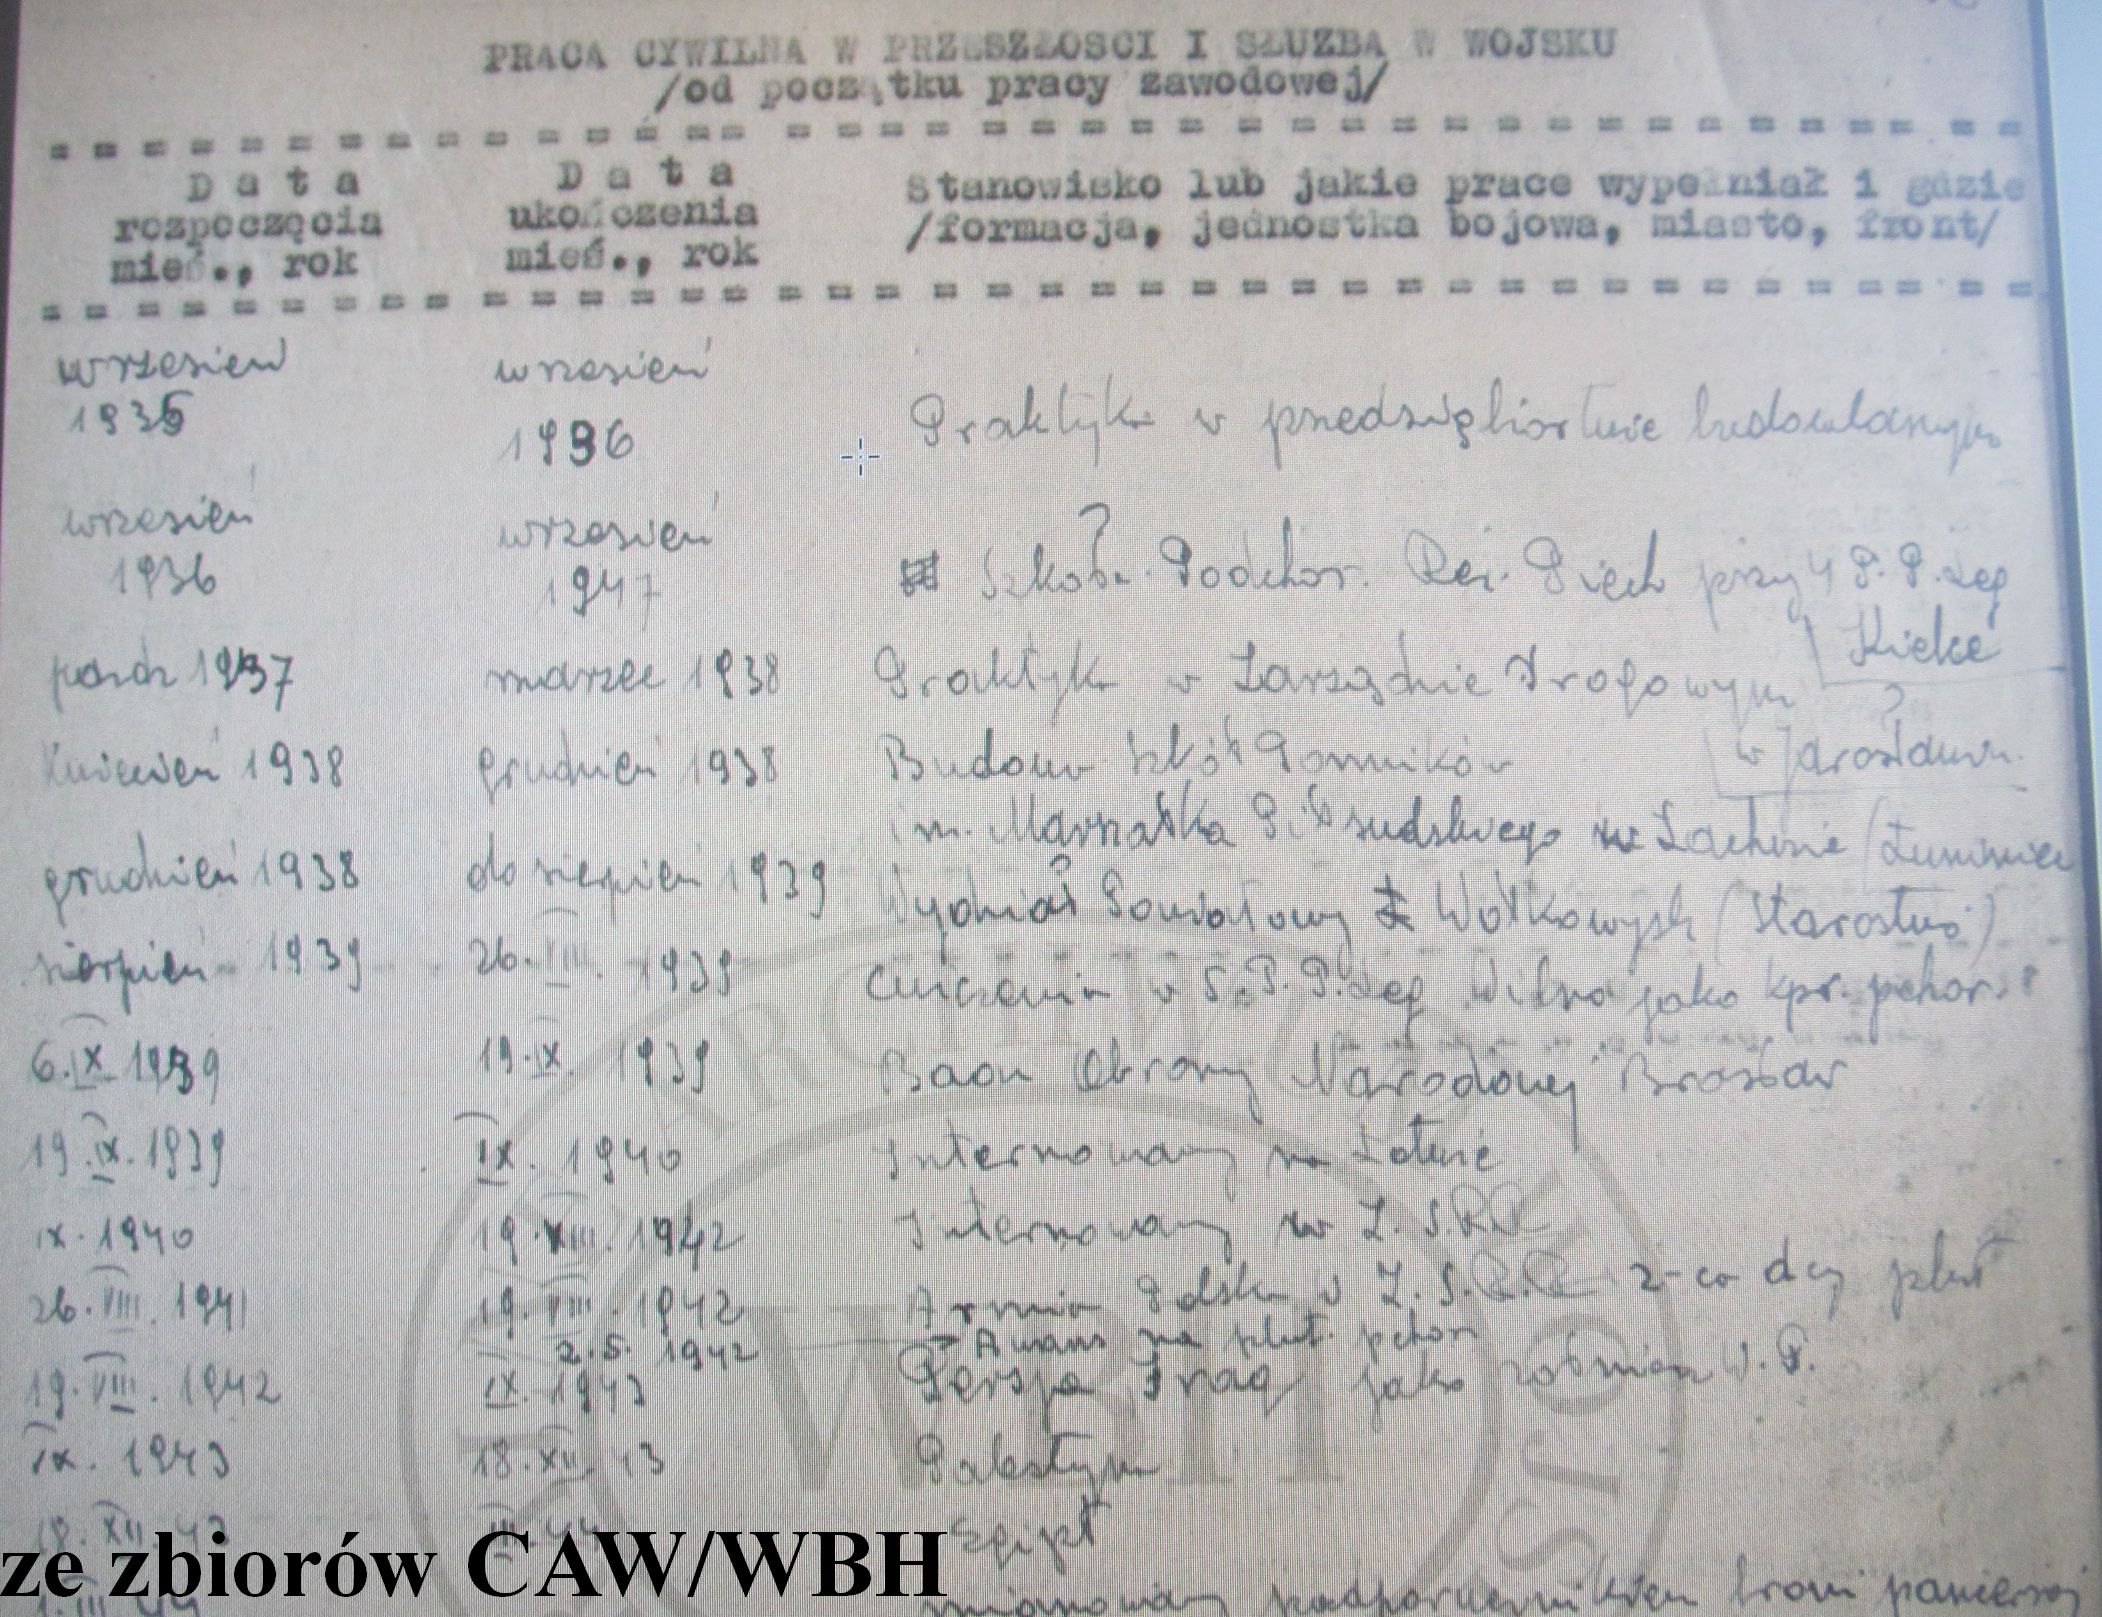 PRACA CYWILNA W PRZESZŁOSCI I SŁUZBA W WOJSKU
/od początku pracy zawodowej/
D a t a rozpoczęcia mieś., rok
D a t a ukończenia mieś., rok
Stanowisko lub jakie prace wypełniał i gdzie
/formacja, jednostka bojowa, miasto, front/
wrzesień 1935 wrzesień 1936 Praktyka w przedsiębiorstwie budowlanym
wrzesień 1936 wrzesień 1947 Szkoła Podchor. Rez. Piech przy 4 P.P.Leg
Kielce
paźdz 1937 marzec 1938 Praktyka w Zarządzie Drogowym
w Jarosławiu
kwiecień 1938 grudzień 1938 Budowa szkół Pomników
im. Marszałka Piłsudskiego w Łachwie (Łuniniec
grudzień 1938 do sierpień 1939 Wydział Powiatowy Wołkowysk (Starostwo)
sierpień 1939 26.VIII. 1939 Ćwiczenia w 5.P.P.Leg Wilno jako kpr. pchor.
6.IX 1939 19.IX. 1939 Baon Obrony Narodowej Brasław
19.IX.1939 IX. 1940 Internowany na Łotwie
IX.1940 19.XIII.1942 Internowany w Z.S.R.R
26.VIII.1941 19.VIII.1942 Armia Polska w Z.S.R.R z-ca dcy plut
2.5.1942 → Awans na plut. pchor
19.VIII.1942 IX.1943 Persja Iraq jako W.P.
IX.1943 18.XII.43 Palestyna
18.XII.43 Egipt
mianowany podporucznikiem broni pancernej
ze zbiorów CAW/WBH